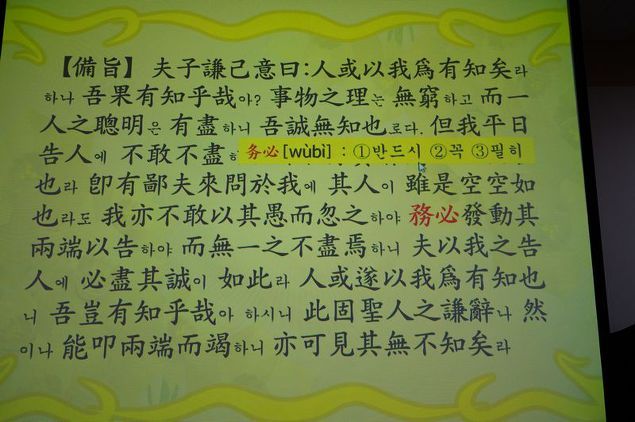 【備旨】 夫子謙己意曰:人或以我爲有知矣라
하나 吾果有知乎哉아? 事物之理는 無窮하고 而一
人之聰明은 有盡하니 吾誠無知也로다. 但我平日
告人에 不敢不盡하
务必[wùbì] : ①반드시 ②꼭 ③필히
也라 卽有鄙夫來問於我에 其人이 雖是空空如
也라도 我亦不敢以其愚而忽之하야 務必發動其
兩端以告하야 而無一之不盡焉하니 夫以我之告
人에 必盡其誠이 如此라 人或遂以我爲有知也
니 吾豈有知乎哉아 하시니 此固聖人之謙辭나 然
이나 能叩兩端而竭하니 亦可見其無不知矣라